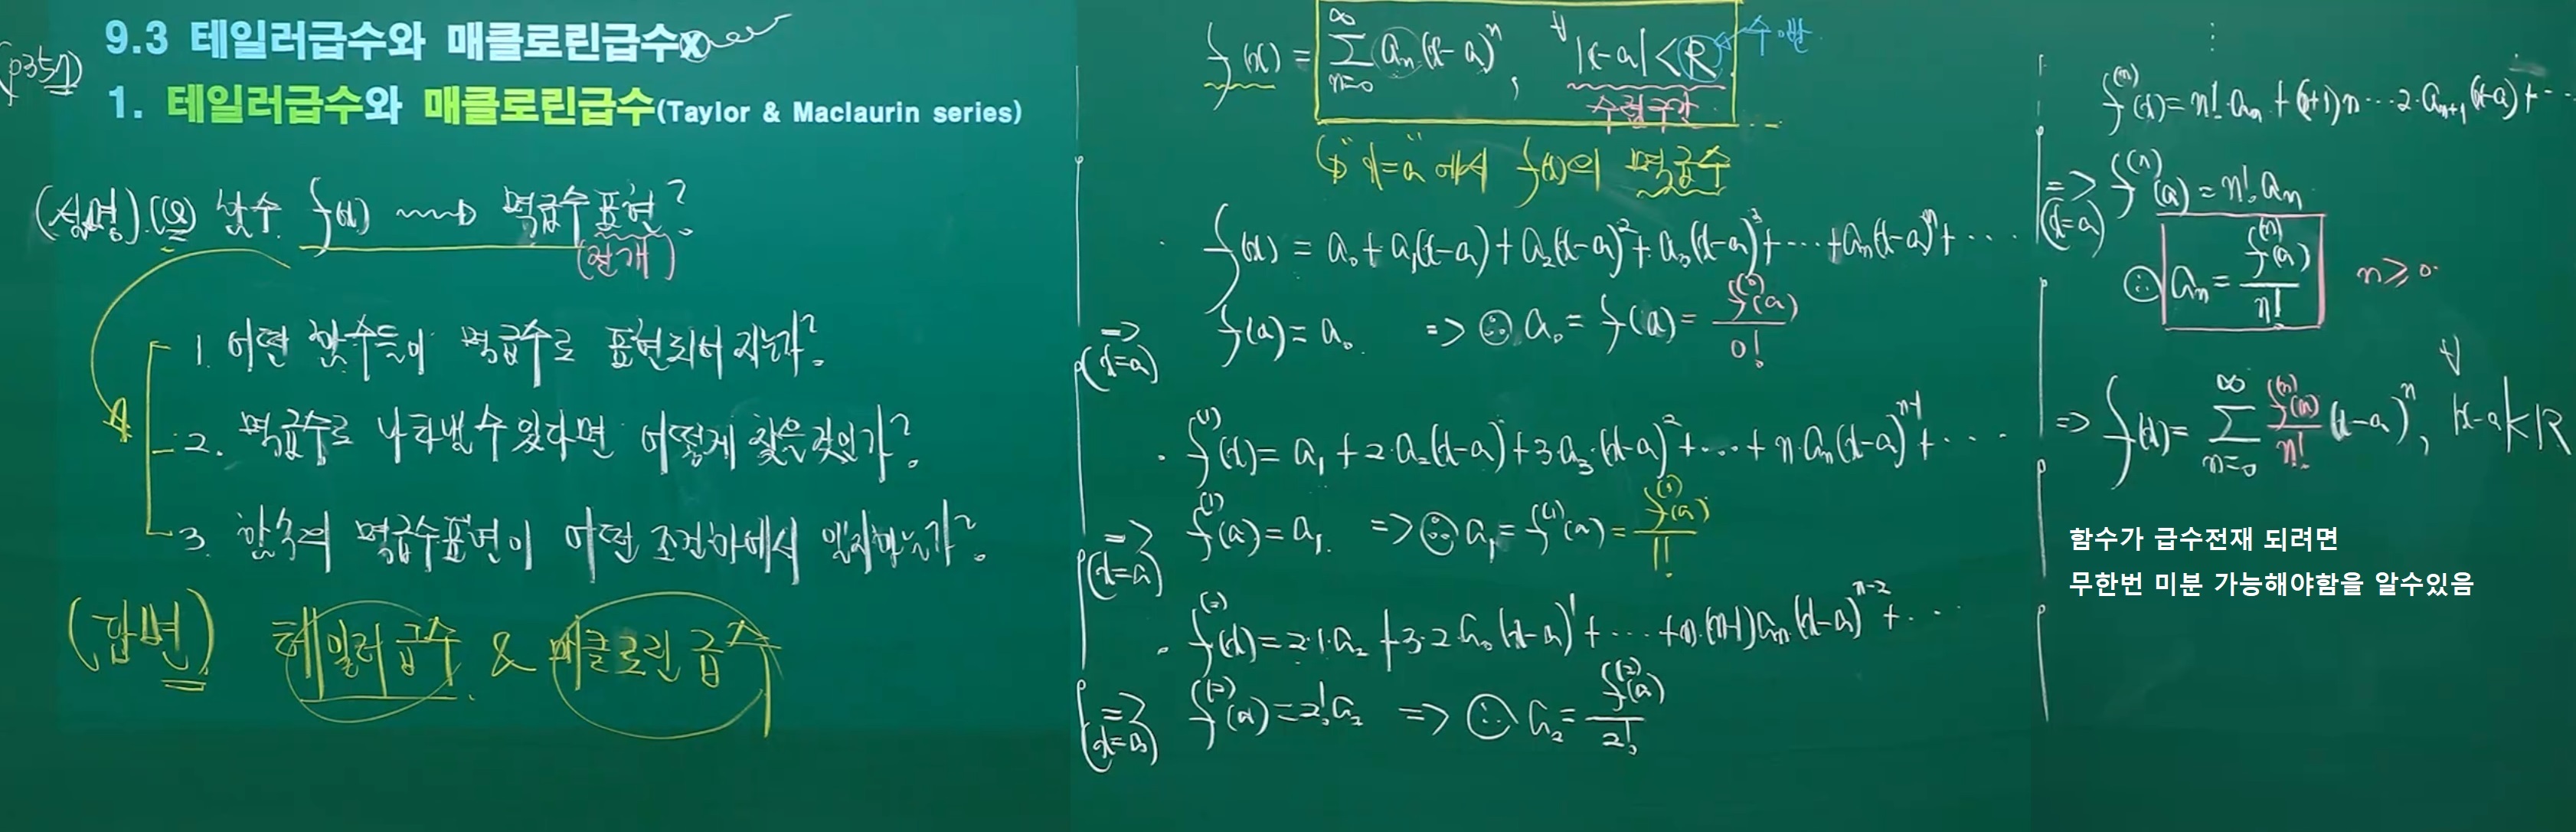 9.3 테일러급수와 매클로린급수
(p357)
1. 테일러급수와 매클로린급수(Taylor & Maclaurin series)
(설명).(Q) 함수 f(x) ⟿ 멱급수표현?
(전개)
1. 어떤 함수들이 멱급수로 표현되어 지는가?
2. 멱급수로 나타낼 수 있다면 어떻게 찾을것인가?
3. 함수의 멱급수표현이 어떤 조건하에서 일치하는가?
(답변) 테일러급수 & 매클로린급수
f(x) = ∑_{n=0}^{∞} a_n(x-a)^n, ∀ |x-a| < R
수렴구간
"x=a"에서 f(x)의 멱급수
f(x) = a_0 + a_1(x-a) + a_2(x-a)^2 + a_3(x-a)^3 + ⋯ + a_n(x-a)^n + ⋯
=> (x=a) f(a) = a_0. => ∴ a_0 = f(a) = f^{(0)}(a)/0!
f^{(1)}(x) = a_1 + 2·a_2(x-a) + 3·a_3·(x-a)^2 + ⋯ + n·a_n(x-a)^{n-1} + ⋯
=> (x=a) f^{(1)}(a) = a_1. => ∴ a_1 = f^{(1)}(a) = f^{(1)}(a)/1!
f^{(2)}(x) = 2·1·a_2 + 3·2·a_3(x-a)^1 + ⋯ + n·(n-1)a_n(x-a)^{n-2} + ⋯
=> (x=a) f^{(2)}(a) = 2!a_2 => ∴ a_2 = f^{(2)}(a)/2!
⋮
f^{(n)}(x) = n!·a_n + (n+1)n⋯2·a_{n+1}(x-a) + ⋯
=> (x=a) f^{(n)}(a) = n!a_n
∴ a_n = f^{(n)}(a)/n! n≥0
=> f(x) = ∑_{n=0}^{∞} f^{(n)}(a)/n! (x-a)^n, ∀ |x-a|<R
함수가 급수전재 되려면
무한번 미분 가능해야함을 알수있음